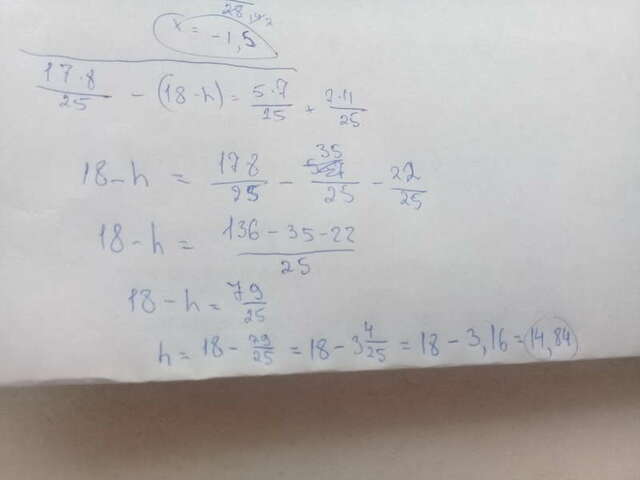 x = -1,5
17·8/25 - (18-h) = 5·7/25 + 2·11/25
18-h = 17 8/25 - 35/25 - 22/25
18-h = 136-35-22/25
18-h = 79/25
h = 18 - 79/25 = 18 - 3 4/25 = 18 - 3,16 = 14,84